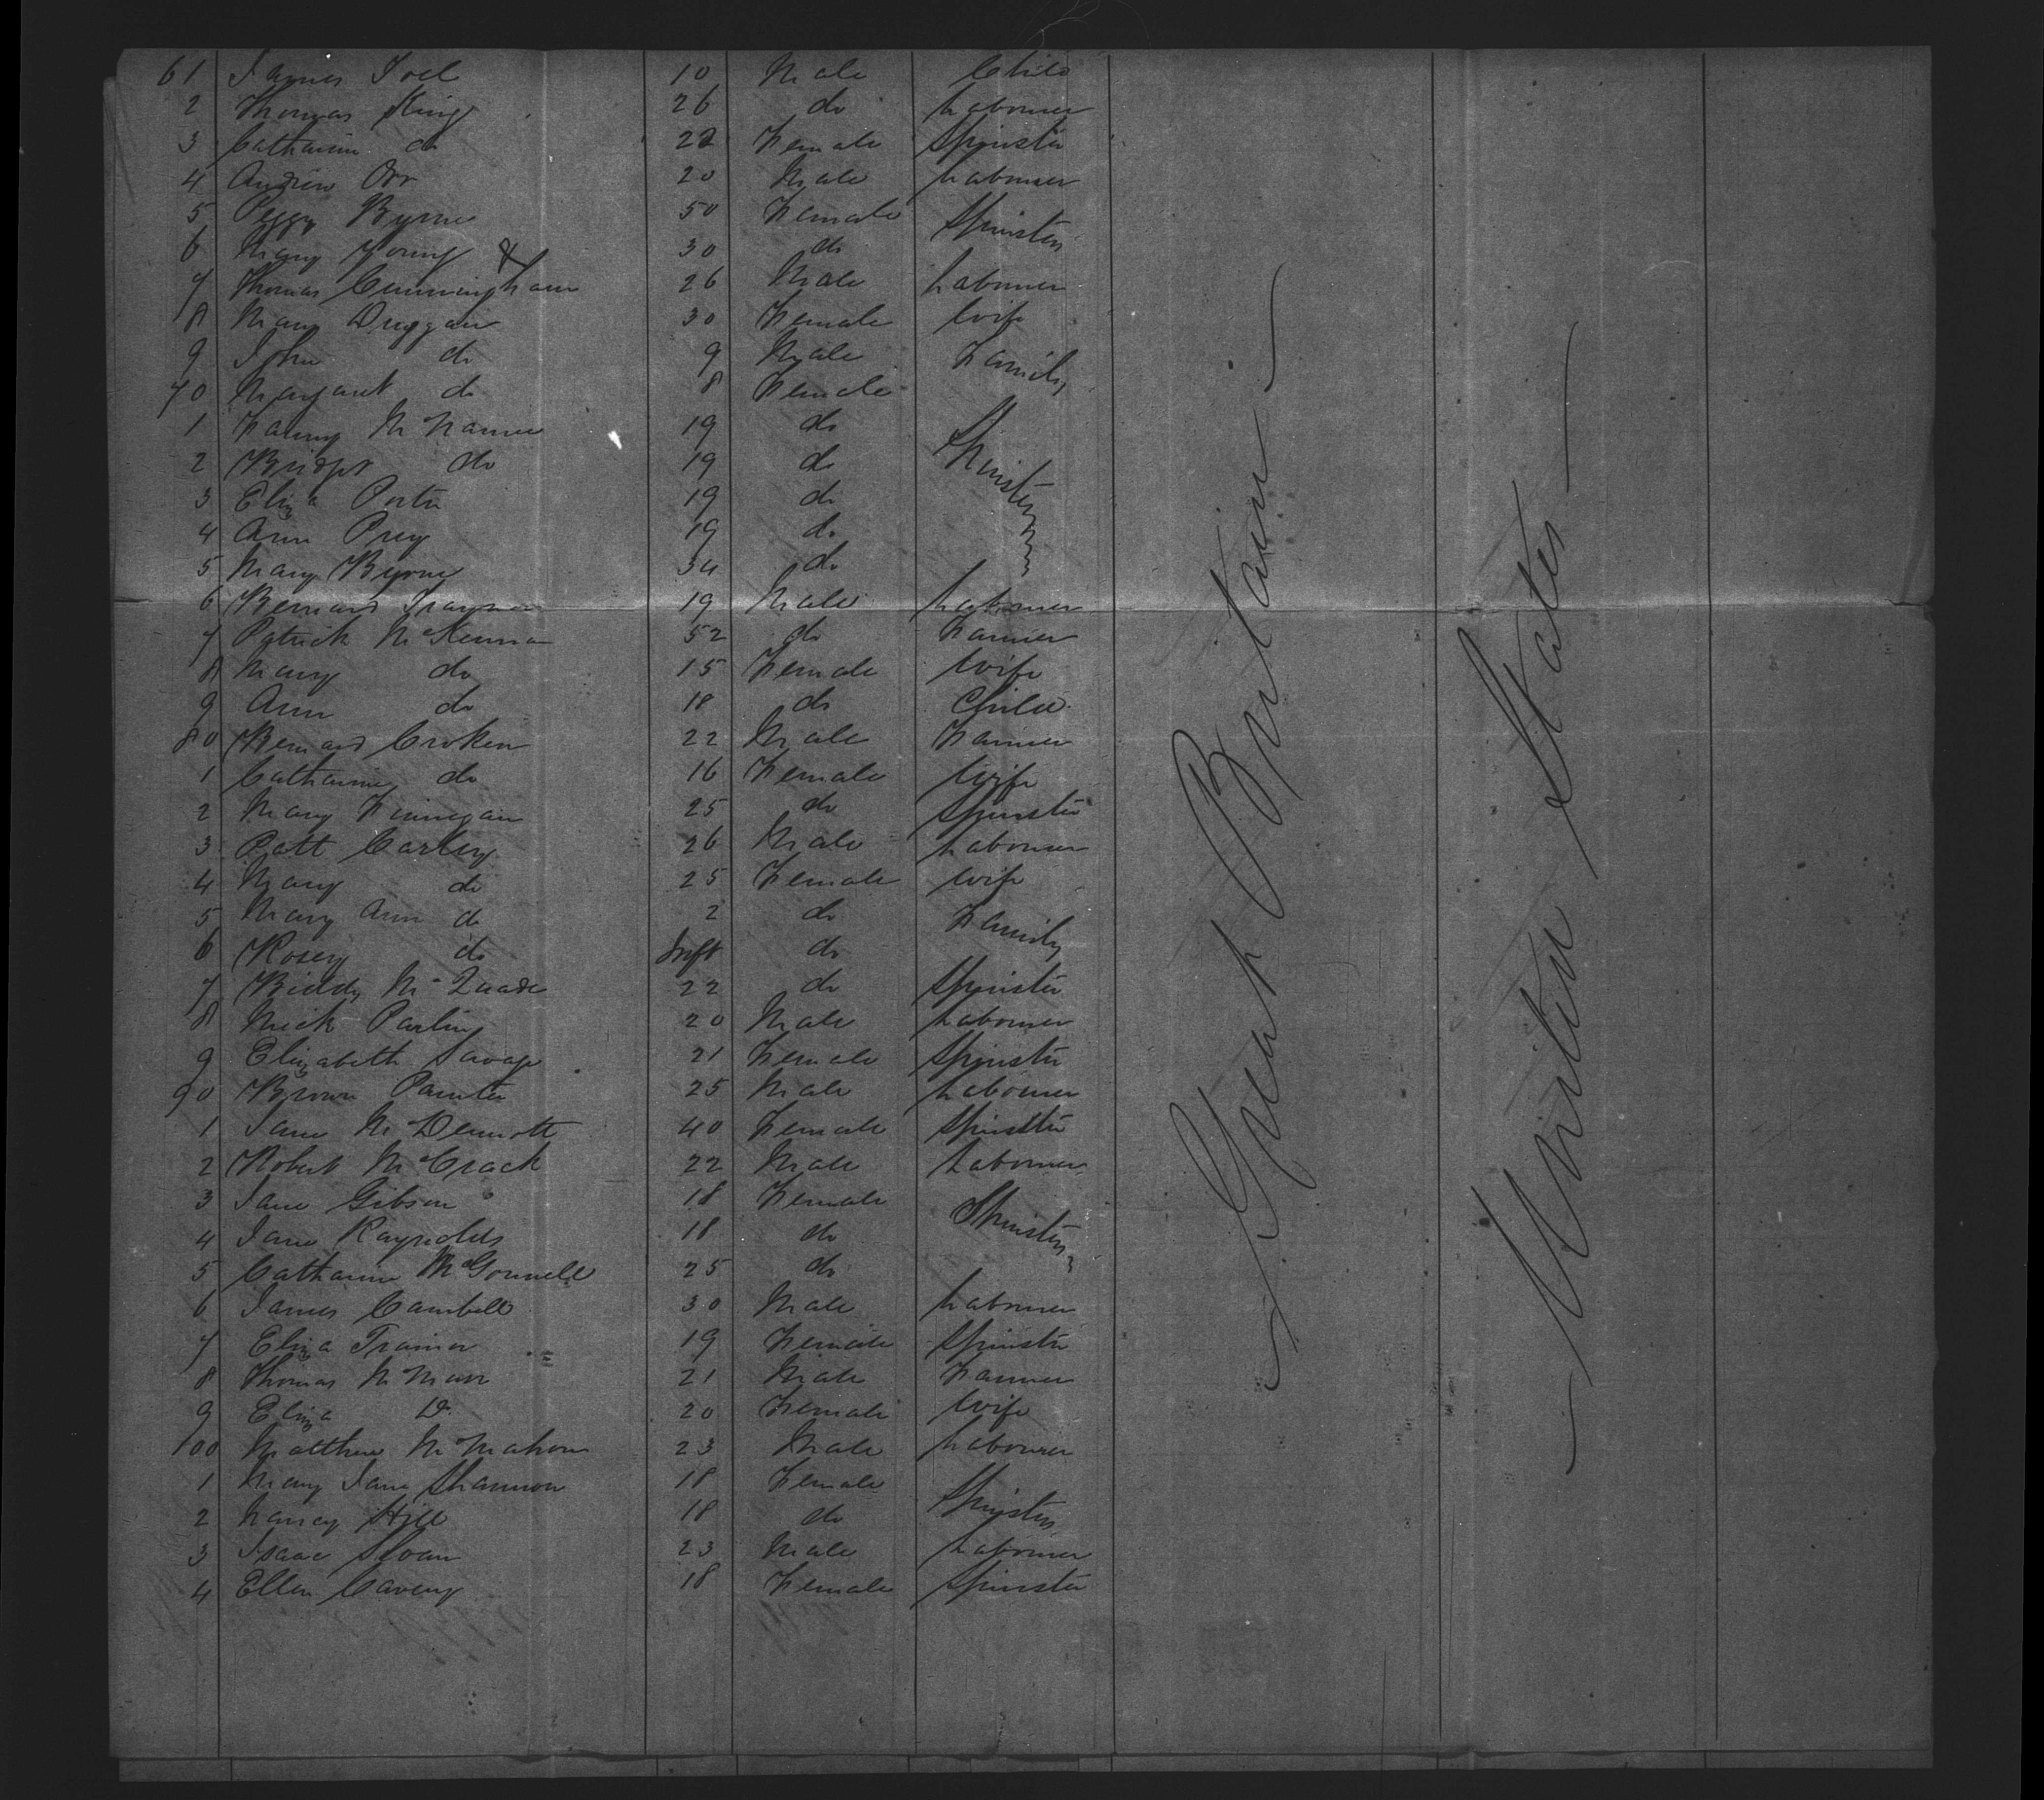 61 James Joel 10 Male Child
2 Thomas King 26 do Labourer
3 Catharine do 22 Female Spinster
4 Andrew Orr 20 Male Labourer
5 Peggy Byrne 50 Female Spinsters
6 Mary Young 30 do
7 Thomas Cunningham 26 Male Labourer
8 Mary Duggan 30 Female Wife
9 John do 9 Male Family
70 Margaret do 8 Female
1 Fanny McNamee 19 do Spinsters
2 Bridget do 19 do
3 Eliza Porter 19 do
4 Ann Prey 19 do
5 Mary Byrne 34 do
6 Bernard Traynor 19 Male Labourer
7 Patrick McKenna 52 do Farmer
8 Mary do 15 Female Wife
9 Ann do 18 do Child
80 Bernard Croken 22 Male Farmer
1 Catharine do 16 Female Wife
2 Mary Finnegan 25 do Spinster
3 Patt Carley 26 Male Labourer
4 Mary do 25 Female Wife
5 Mary Ann do 2 do Family
6 Rosey do Inft do
7 Biddy McQuade 22 do Spinster
8 Mick Parling 20 Male Labourer
9 Elizabeth Savage 21 Female Spinster
90 Brown Painter 25 Male Labourer
1 Jane McDermott 40 Female Spinster
2 Robert McCrack 22 Male Labourer
3 Jane Gibson 18 Female Spinsters
4 Jane Raynolds 18 do
5 Catharine McGonnell 25 do
6 James Cambell 30 Male Labourer
7 Eliza Trainor 19 Female Spinster
8 Thomas McMurr 21 Male Farmer
9 Eliza Do 20 Female Wife
100 Matthew McMahon 23 Male Labourer
1 Mary Jane Shannon 18 Female Spinsters
2 Nancy Hill 18 do
3 Isaac Sloan 23 Male Labourer
4 Ellen Caveny 18 Female Spinster
Great Britain
United States